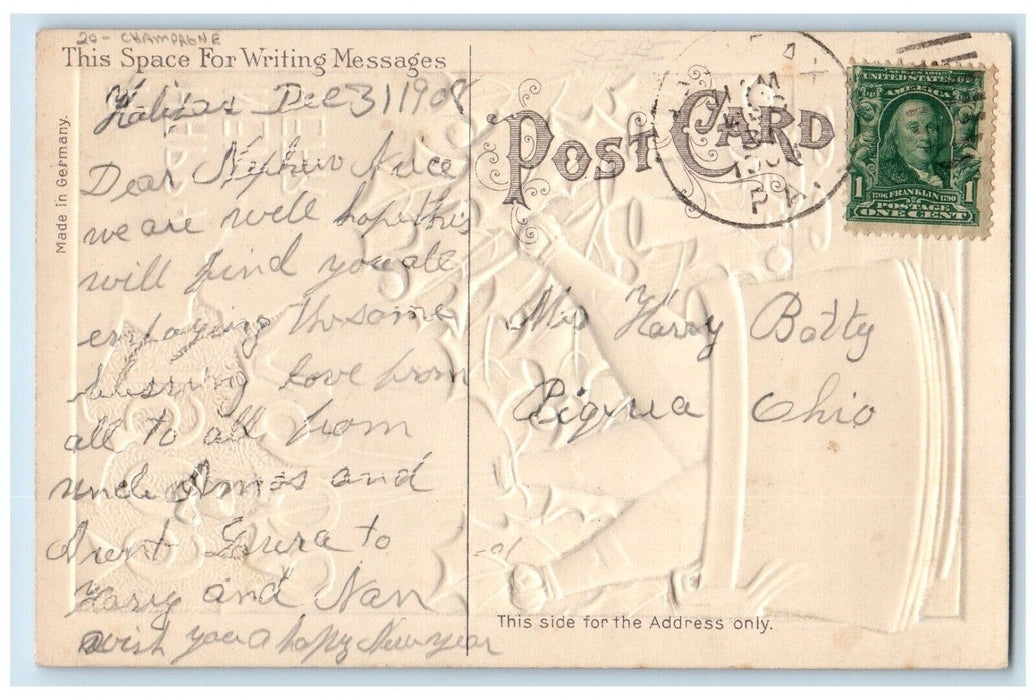 20- CHAMPAGNE
This Space For Writing Messages
Halifax Dec 31 1908
Dear Nephew Niece
we are well hope this
will find you all
enjoying the same
blessing love from
all to all from
uncle Amos and
Aunt Laura to
Harry and Nan
wish you a happy New year
Made in Germany.
POST CARD
PA.
SERIES 1902
UNITED STATES OF
AMERICA
1706 FRANKLIN 1790
1 POSTAGE 1
ONE CENT
Mrs Harry Botty
Piqua Ohio
10-
This side for the Address only.